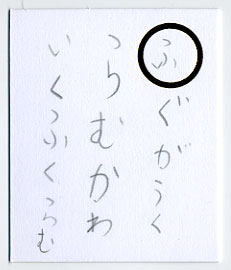 ふぐがうく
うらむかわ
いくうふくうらむ